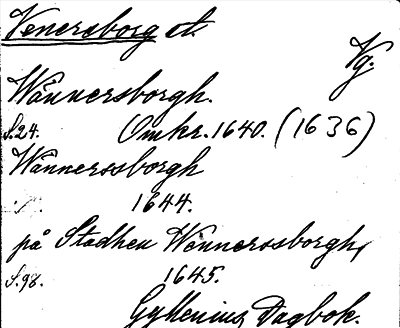 Venersborg st.
Vg.
Wännersborgh.
S.24. Omkr. 1640. (1636)
Wännerssborgh
1644.
på Stadhen Wennerssborgh,
S.98. 1645.
Gyllenius Dagbok.